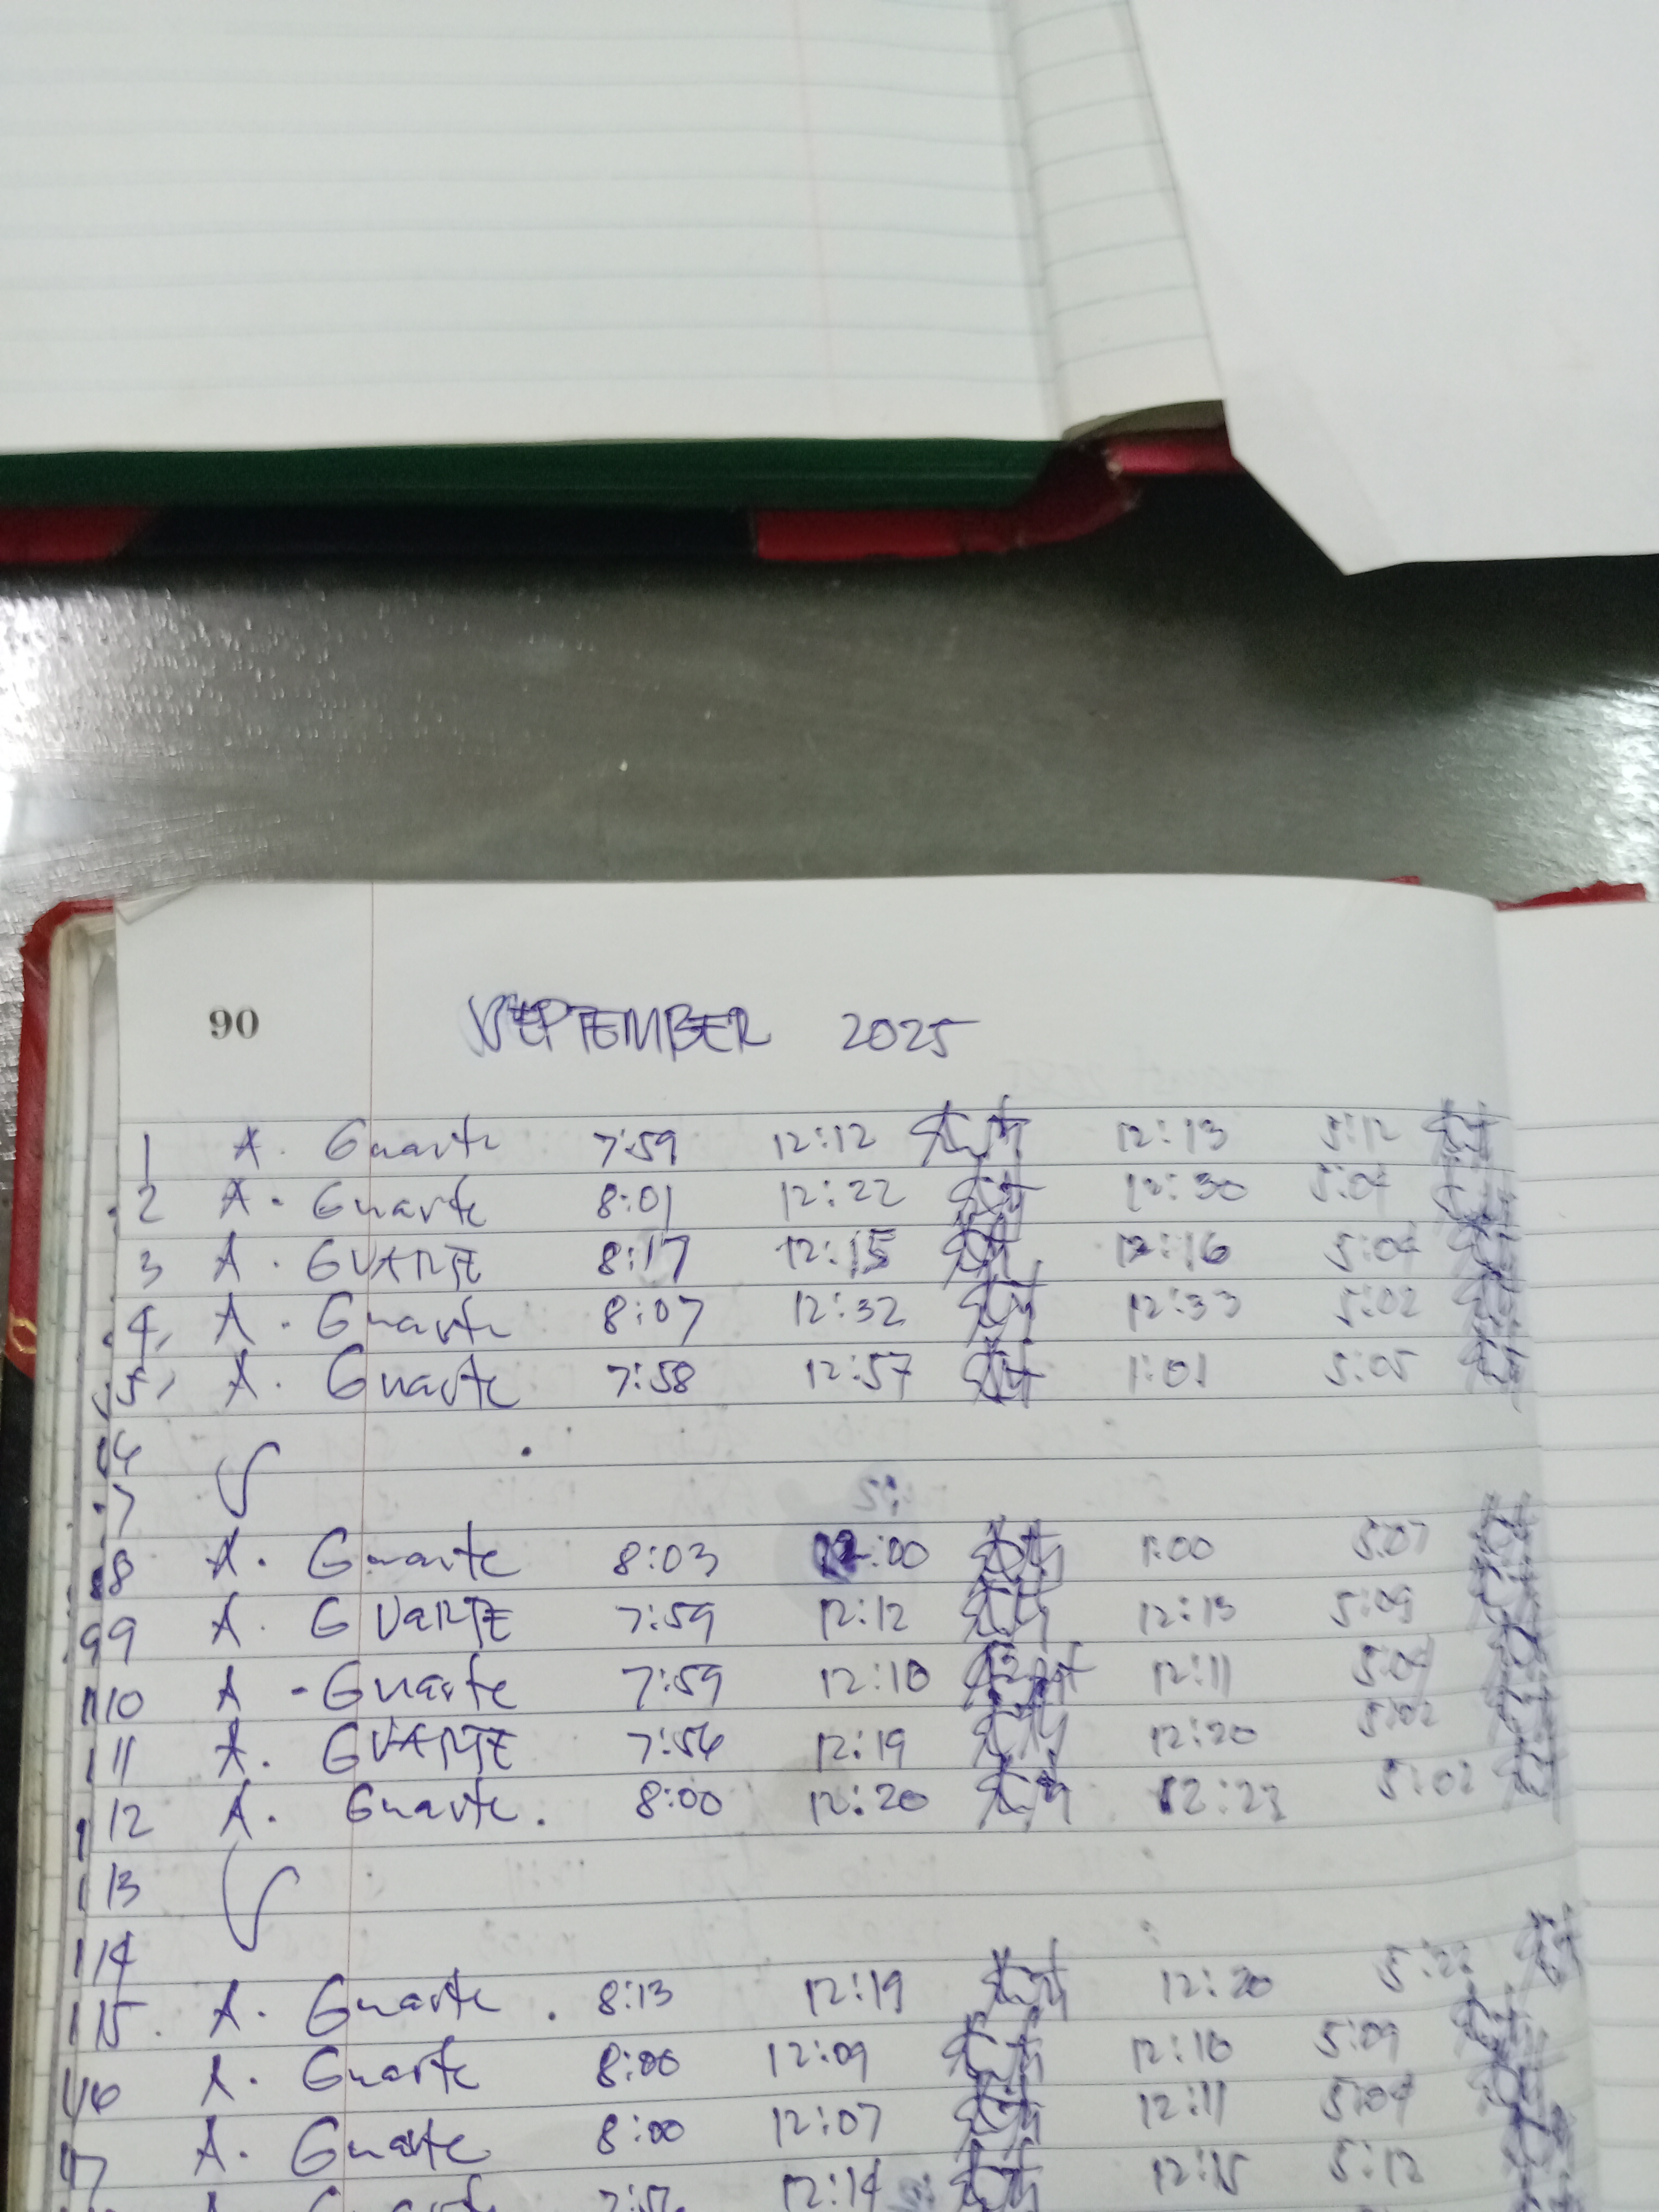 90 SEPTEMBER 2025
1 A. Guarte 7:59 12:12 12:13 5:12
2 A. Guarte 8:01 12:22 12:30 5:04
3 A. GUARTE 8:17 12:15 12:16 5:04
4, A. Guarte 8:07 12:32 12:33 5:02
5, A. Guarte 7:58 12:57 1:01 5:05
6
7
8 A. Guarte 8:03 12:00 1:00 5:07
9 A. GUaRTE 7:59 12:12 12:13 5:09
10 A. Guarte 7:59 12:10 12:11 5:04
11 A. GUARTE 7:56 12:19 12:20 5:02
12 A. Guarte. 8:00 12:20 12:23 5:02
13
14
15. A. Guarte. 8:13 12:19 12:20 5:22
16 A. Guarte 8:00 12:09 12:10 5:09
17 A. Guarte 8:00 12:07 12:11 5:09
12:14 12:15 5:12